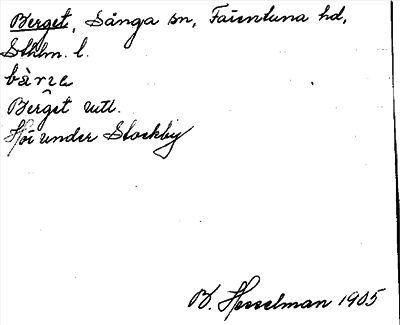 Berget, Sånga sn, Färentuna hd,
Sthlm. l.
Berget uttl.
Hör under Stockby
B. Hesselman 1905